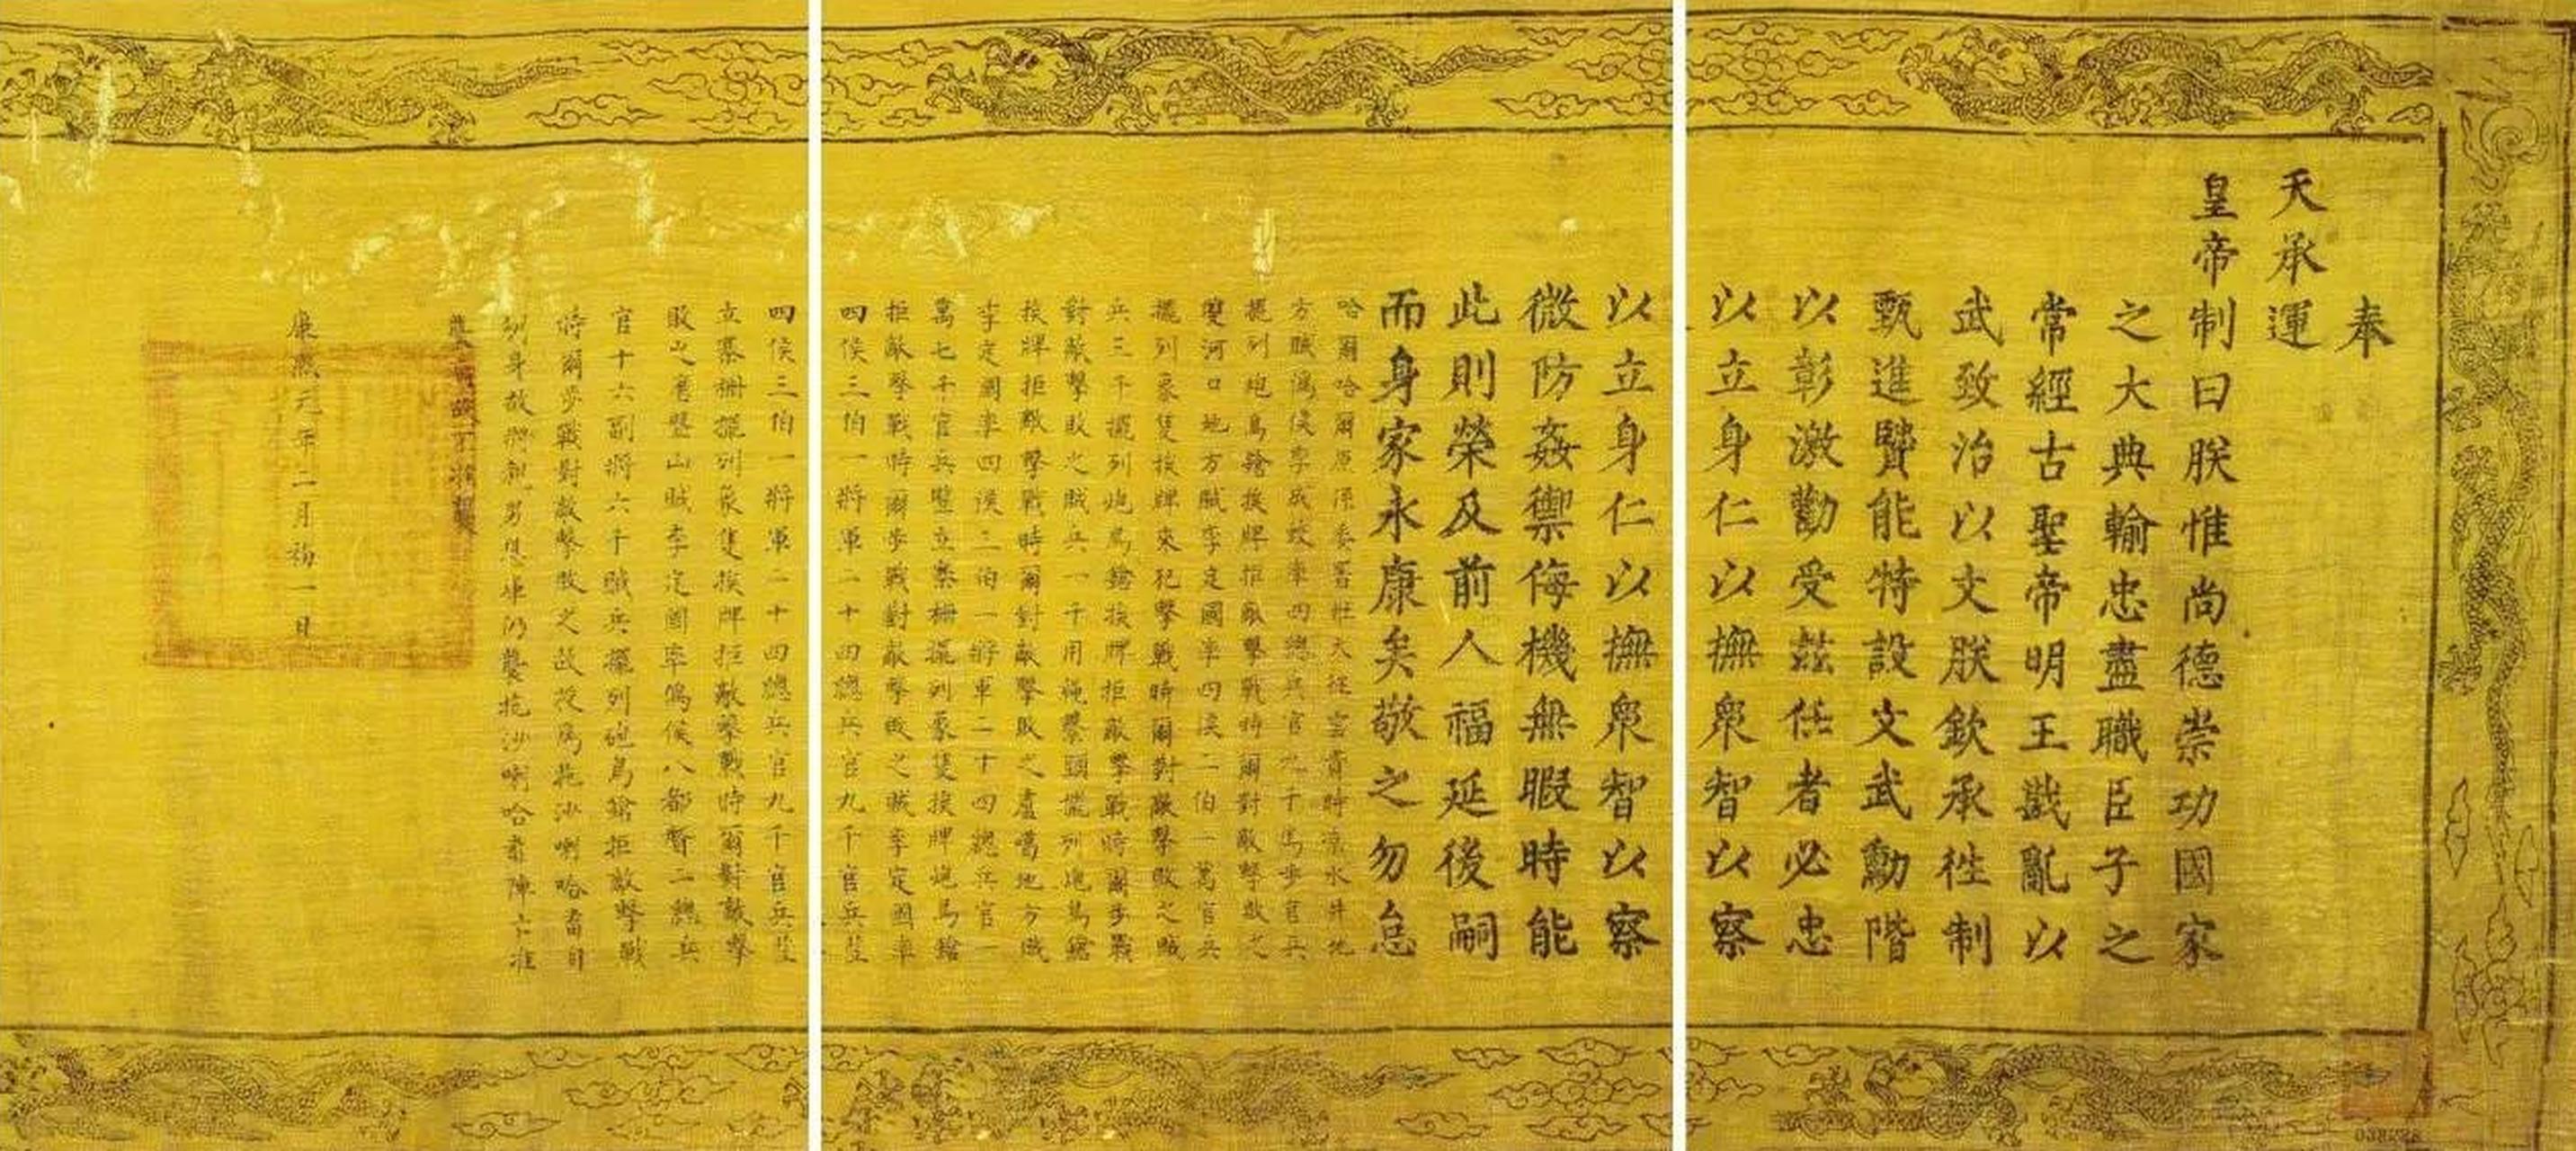 奉
天承運
皇帝制曰朕惟尚德崇功國家
之大典輸忠盡職臣子之
常經古聖帝明王戡亂以
武致治以文朕欽承徃制
甄進賢能特設文武勳階
以彰激勸受玆任者必忠
以立身仁以撫衆智以察
以立身仁以撫衆智以察
微防姦禦侮機無暇時能
此則榮及前人福延後嗣
而身家永康矣敬之勿怠
哈爾哈爾原係委署壯大征雲貴時凉水井地
方賊偽侯李成蛟率四總兵官九千馬步官兵
擺列炮鳥鎗挨牌拒敵擊戰時爾對敵擊敗之
雙河口地方賊李定國率四侯二伯一萬官兵
擺列象隻挨牌來犯擊戰時爾對敵擊敗之賊
兵三千擺列炮鳥鎗挨牌拒敵擊戰時爾步戰
對敵擊敗之賊兵一千用繩攀頭擺列炮鳥鎗
挨牌拒敵擊戰時爾對敵擊敗之盧噶地方賊
李定國率四侯三伯一將軍二十四總兵官一
萬七千官兵豎立寨柵擺列象隻挨牌炮鳥鎗
拒敵擊戰時爾步戰對敵擊敗之賊李定國率
四侯三伯一將軍二十四總兵官九千官兵豎
四侯三伯一將軍二十四總兵官九千官兵豎
立寨柵擺列象隻挨牌拒敵擊戰時爾對敵擊
敗之磨盤山賊李定國率偽侯八都督二總兵
官十六副將六千賊兵擺列砲鳥鎗拒敵擊戰
時爾步戰對敵擊敗之故授爲拖沙喇哈番日
身故將親男恩庫仍襲拖沙喇哈番陣亡准
襲病故不准襲
康熙元年二月初一日